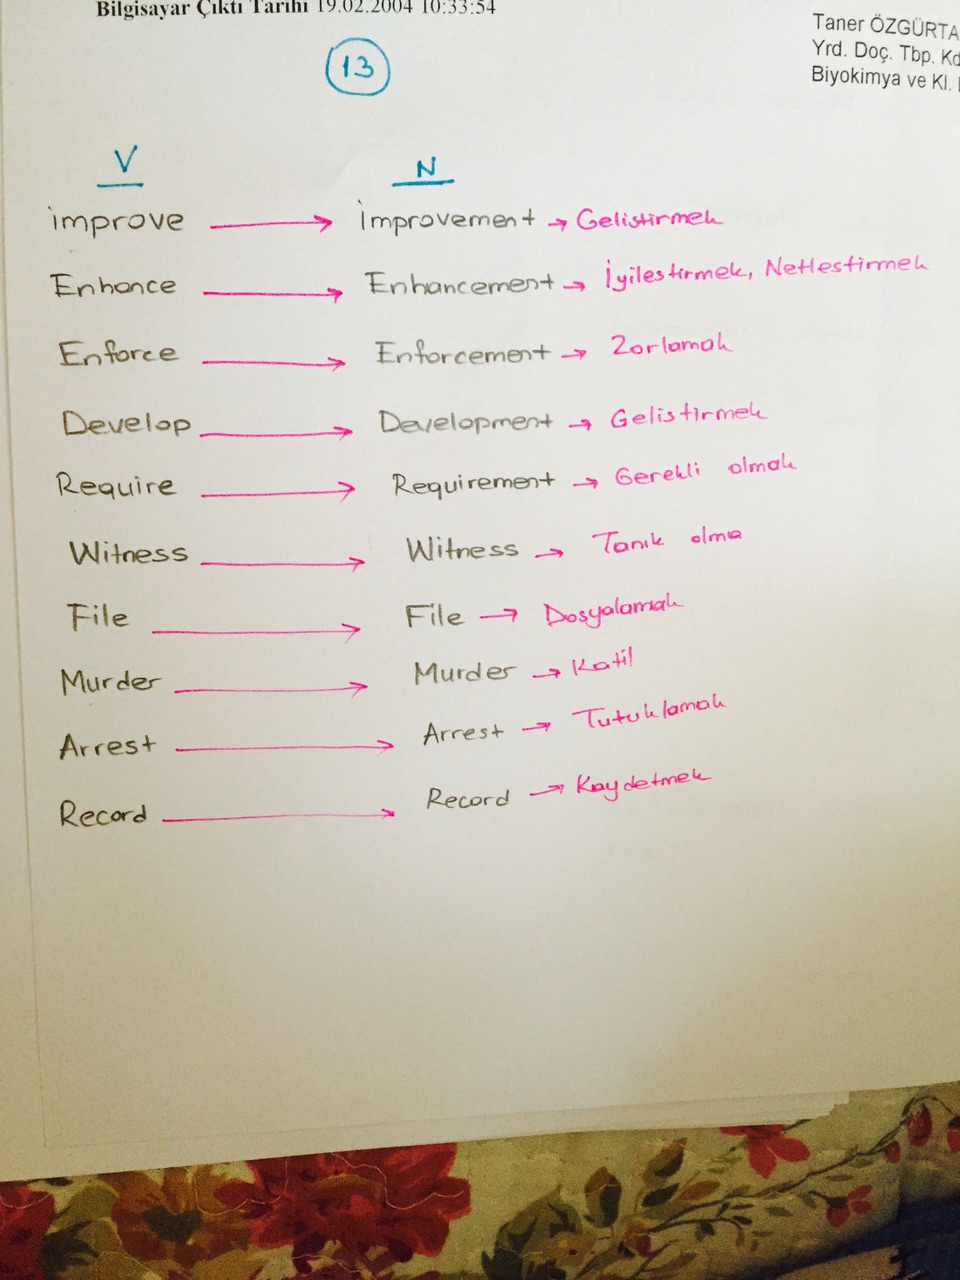 Bilgisayar Çıktı Tarihi 19.02.2004 10:33:54
Taner ÖZGÜRTA
Yrd. Doç. Tbp. Kd
Biyokimya ve Kl.
13
V N
improve → İmprovement → Gelistirmek
Enhance → Enhancement → İyilestirmek, Netlestirmek
Enforce → Enforcement → Zorlamak
Develop → Development → Gelistirmek
Require → Requirement → Gerekli olmak
Witness → Witness → Tanık olma
File → File → Dosyalamak
Murder → Murder → Katil
Arrest → Arrest → Tutuklamak
Record → Record → Kaydetmek